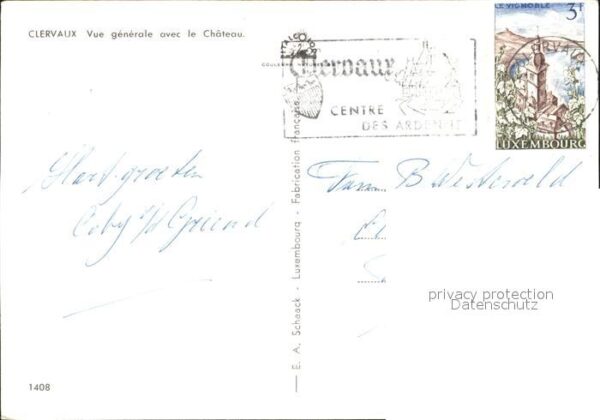 CLERVAUX Vue générale avec le Château.
Clervaux
CENTRE
DES ARDENNES
LE VIGNOBLE
3F
CLERVAUX
LUXEMBOURG
Hart. groeten
Coby
Fam B Westerveld
E. A. Schaack - Luxembourg - Fabrication française
privacy protection
Datenschutz
1408